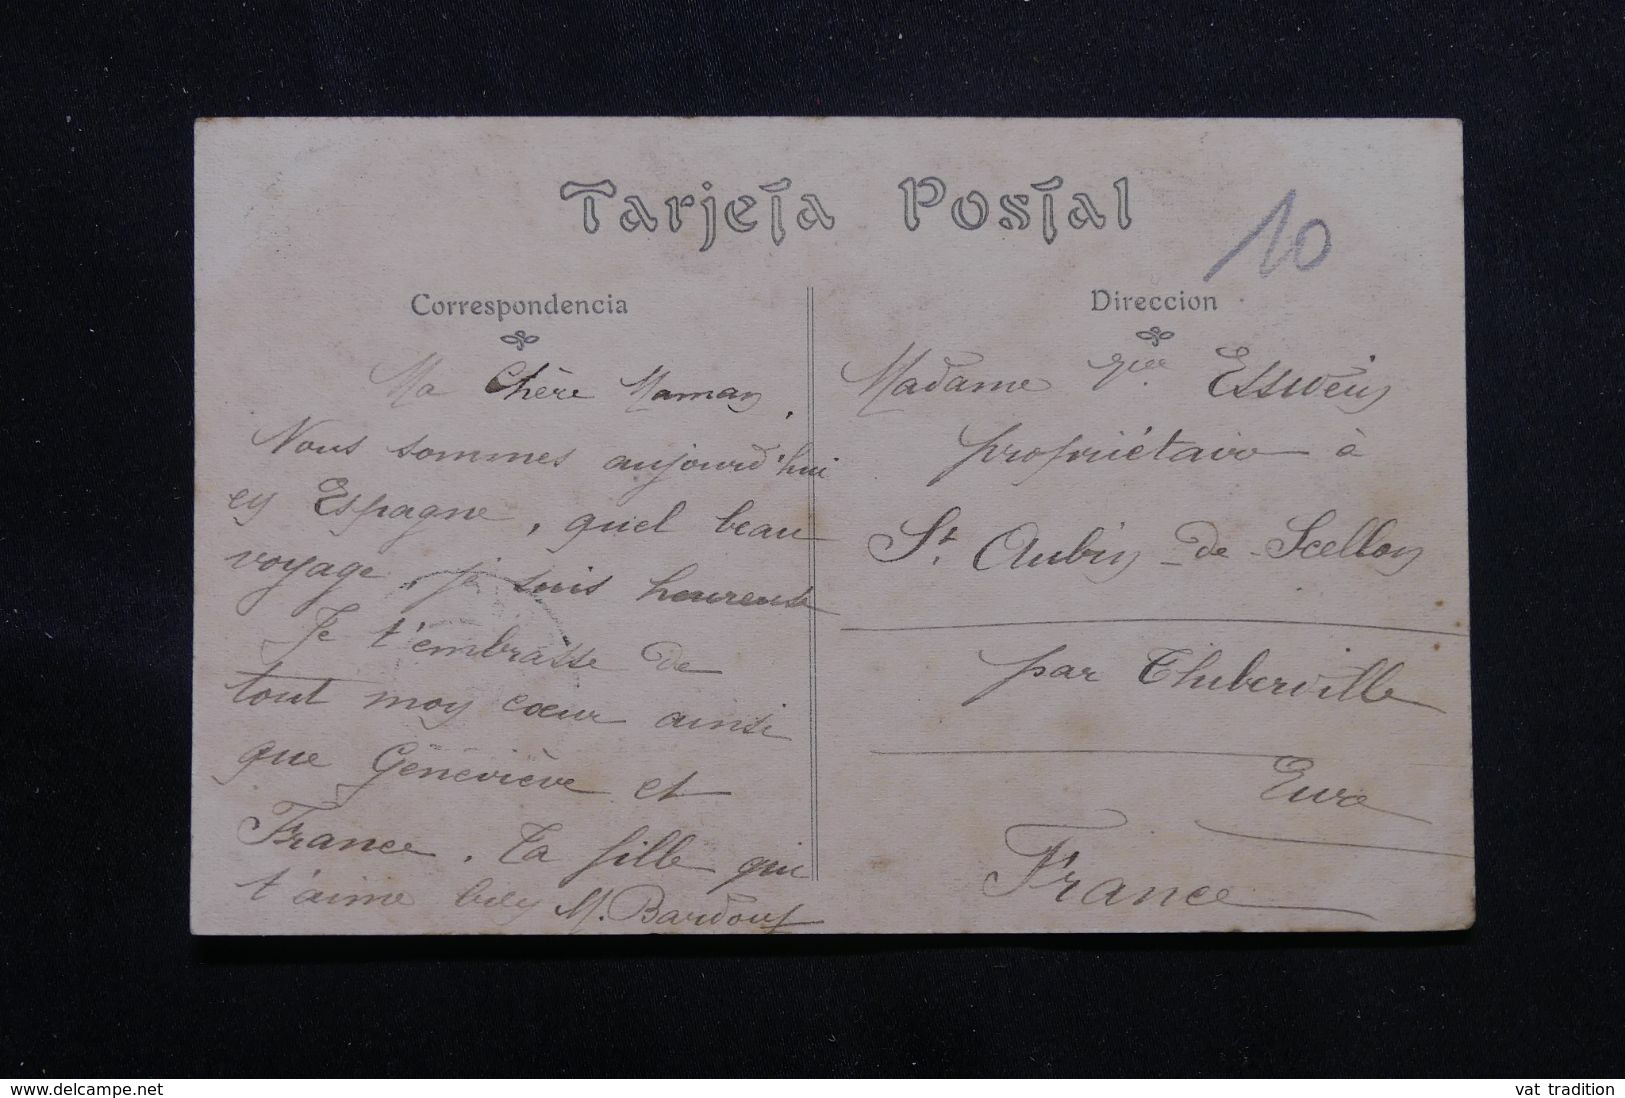 Tarjeta Postal
10
Correspondencia
Ma Chère Maman,
Nous sommes aujourd'hui
en Espagne, quel beau
voyage, je suis heureuse
Je t'embrasse de
tout mon cœur ainsi
que Géneviève et
France. Ta fille qui
t'aime bien M. Bardouf
Direccion
Madame Esswein
propriétaire à
St. Aubin-de-Scellon
par Thiberville
Eure
France
www.delcampe.net
vat tradition